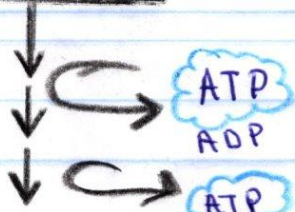 ATP
ADP
ATP